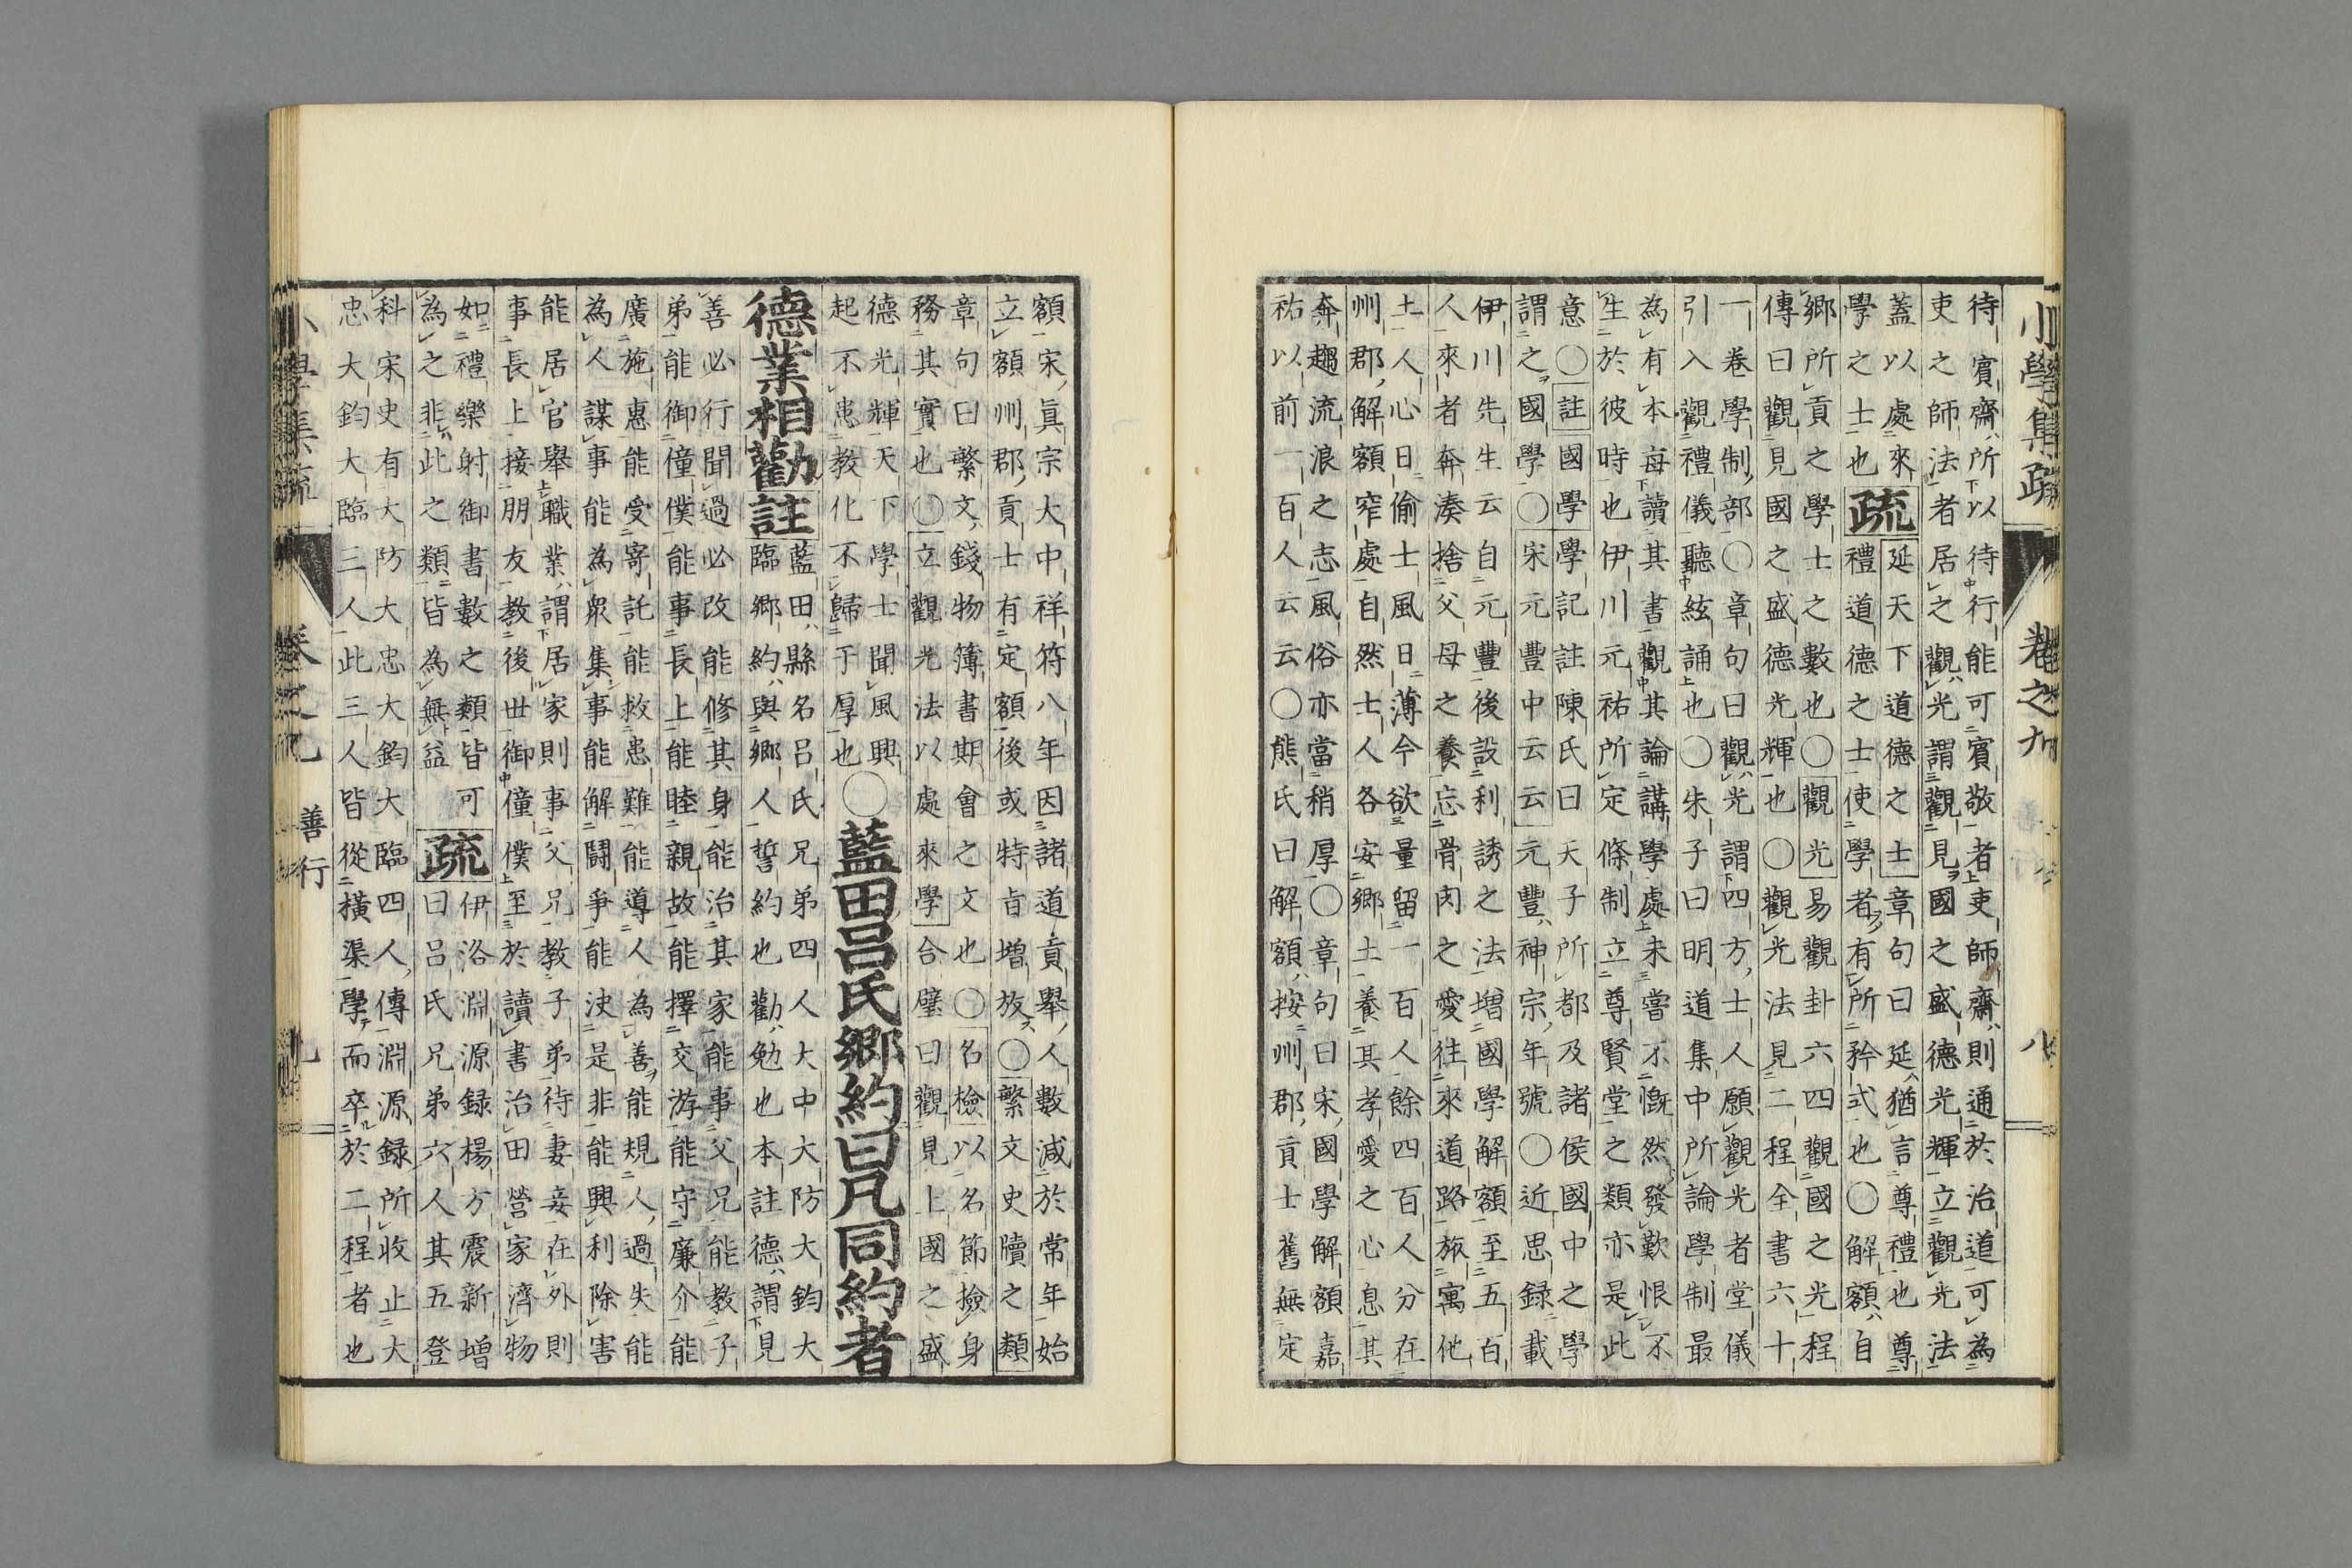 小學集疏 卷之九 八
待賓齋所以待行能可賓敬者吏師齋則通於治道可為
吏之師法者居之觀光謂觀見國之盛德光輝立觀光法
蓋以處來
學之士也疏
延天下道德之士章句曰延猶言尊禮也尊
禮道德之士使學者有所矜式也〇解額自
鄉所貢之學士之數也〇觀光易觀卦六四觀國之光程
傳曰觀見國之盛德光輝也〇觀光法見二程全書六十
一卷學制部〇章句曰觀光謂四方士人願觀光者堂儀
引入觀禮儀聽絃誦也〇朱子曰明道集中所論學制最
為有本每讀其書觀其論講學處未嘗不慨然發歎恨不
生於彼時也伊川元祐所定條制立尊賢堂之類亦是此
意〇註國學學記註陳氏曰天子所都及諸侯國中之學
謂之國學〇宋元豐中云云元豐神宗年號〇近思錄載
伊川先生云自元豐後設利誘之法增國學解額至五百
人來者奔湊捨父母之養忘骨肉之愛往來道路旅寓他
土人心日偷士風日薄今欲量留一百人餘四百人分在
州郡解額窄處自然士人各安鄉土養其孝愛之心息其
奔趨流浪之志風俗亦當稍厚〇章句曰宋國學解額嘉
祐以前一百人云云〇熊氏曰解額按州郡貢士舊無定
額宋真宗大中祥符八年因諸道貢舉人數減於常年始
立額州郡貢士有定額後或特旨增放〇繁文史牘之類
章句曰繁文錢物簿書期會之文也〇名檢以名節撿身
務其實也〇立觀光法以處來學合璧曰觀見上國之盛
德光輝天下學士聞風興
起不患教化不歸于厚也
〇藍田呂氏鄉約曰凡同約者
德業相勸註
藍田縣名呂氏兄弟四人大中大防大鈞大
臨鄉約與鄉人誓約也勸勉也本註德謂見
善必行聞過必改能修其身能治其家能事父兄能教子
弟能御僮僕能事長上能睦親故能擇交游能守廉介能
廣施惠能受寄託能救患難能導人為善能規人過失能
為人謀事能為眾集事能解鬪爭能決是非能興利除害
能居官舉職業謂居家則事父兄教子弟待妻妾在外則
事長上接朋友教後世御僮僕至於讀書治田營家濟物
如禮樂射御書數之類皆可
為之非此之類皆為無益
疏
伊洛淵源錄楊方震新增
曰呂氏兄弟六人其五登
科宋史有大防大忠大鈞大臨四人傳淵源錄所收止大
忠大鈞大臨三人此三人皆從橫渠學而卒於二程者也
小學集疏 卷之九 善行 九